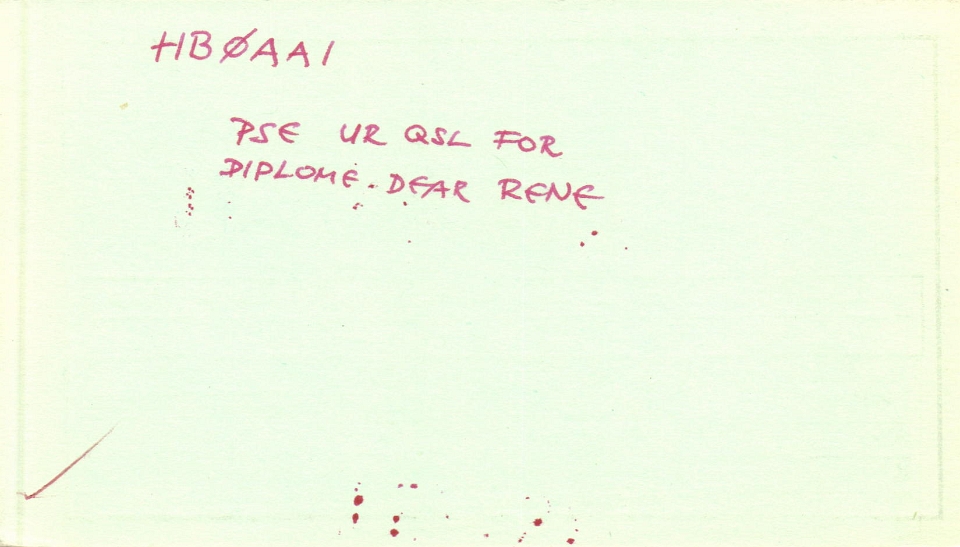 HBØAAI
PSE UR QSL FOR
DIPLOME. DEAR RENE